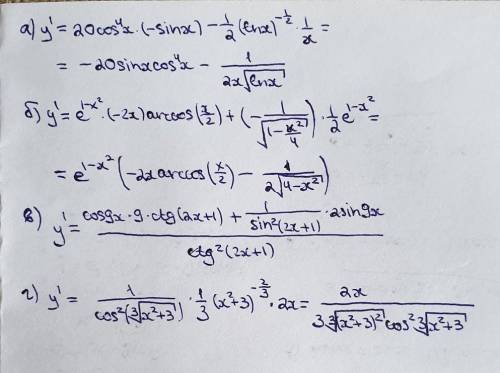 а) y' = 20cos⁴x · (-sinx) - 1/2 (lnx)^(-1/2) · 1/x =
= -20sinxcos⁴x - 1/(2x√(lnx))
б) y' = e^(1-x²) · (-2x) arccos(x/2) + (-1/√(1-x²/4)) · 1/2 e^(1-x²) =
= e^(1-x²) (-2x arccos(x/2) - 1/(2√(4-x²)))
в) y' = (cos9x · 9 · ctg(2x+1) + 1/(sin²(2x+1)) · 2sin9x)/(ctg²(2x+1))
г) y' = 1/(cos²(∛(x²+3))) · 1/3 (x²+3)^(-2/3) · 2x = 2x/(3∛((x²+3)²) cos²∛(x²+3))